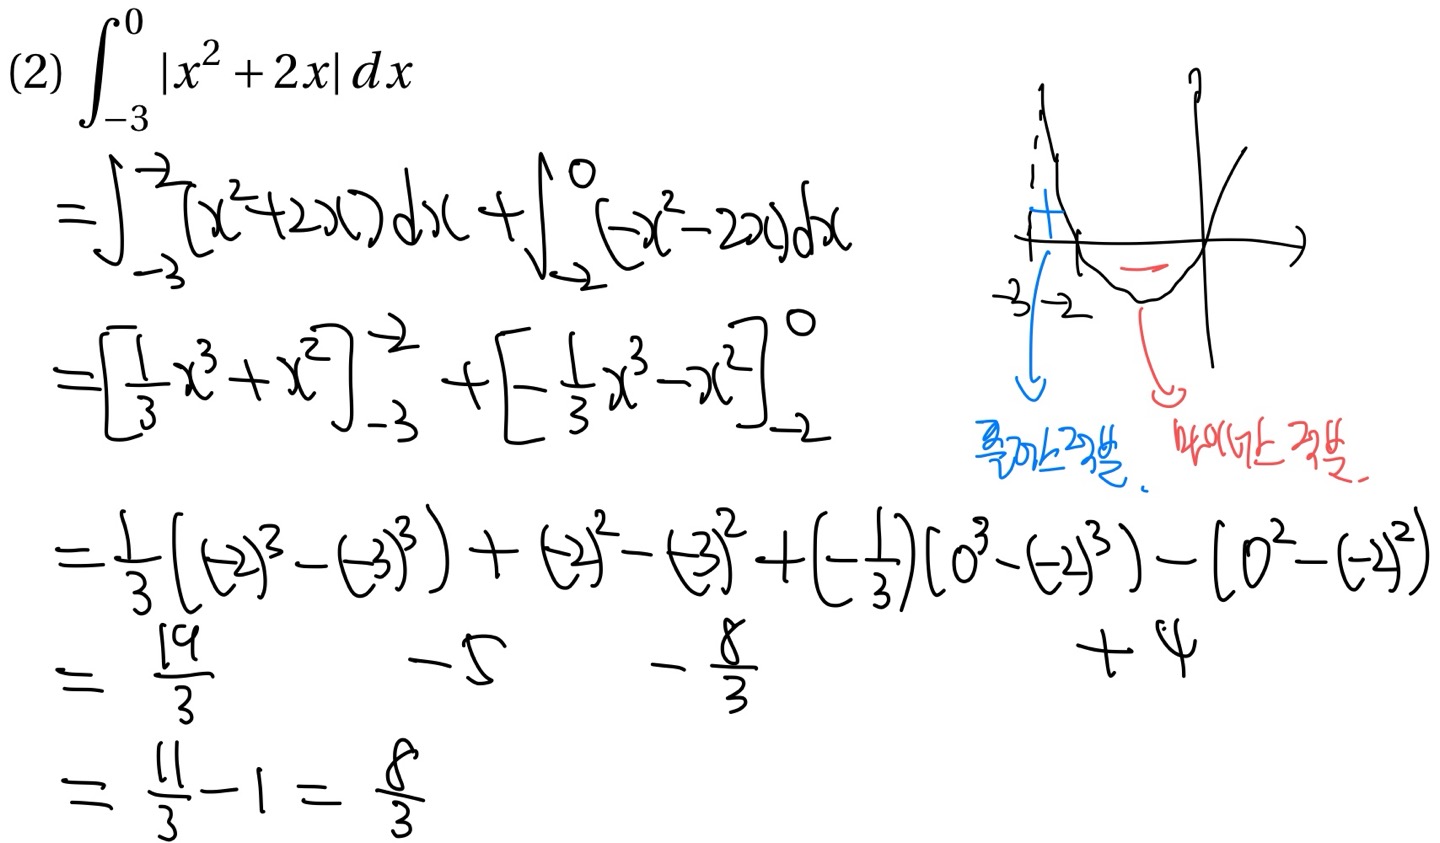 (2) ∫_{-3}^{0} |x² + 2x| dx
= ∫_{-3}^{-2} (x²+2x)dx + ∫_{-2}^{0} (-x²-2x)dx
= [1/3 x³ + x²]_{-3}^{-2} + [-1/3 x³ - x²]_{-2}^{0}
= 1/3 ((-2)³ - (-3)³) + (-2)² - (-3)² + (-1/3)(0³ - (-2)³) - (0² - (-2)²)
= 19/3 - 5 - 8/3 + 4
= 11/3 - 1 = 8/3
+ −
-3 -2
플러스구불.
마이너스 구불.